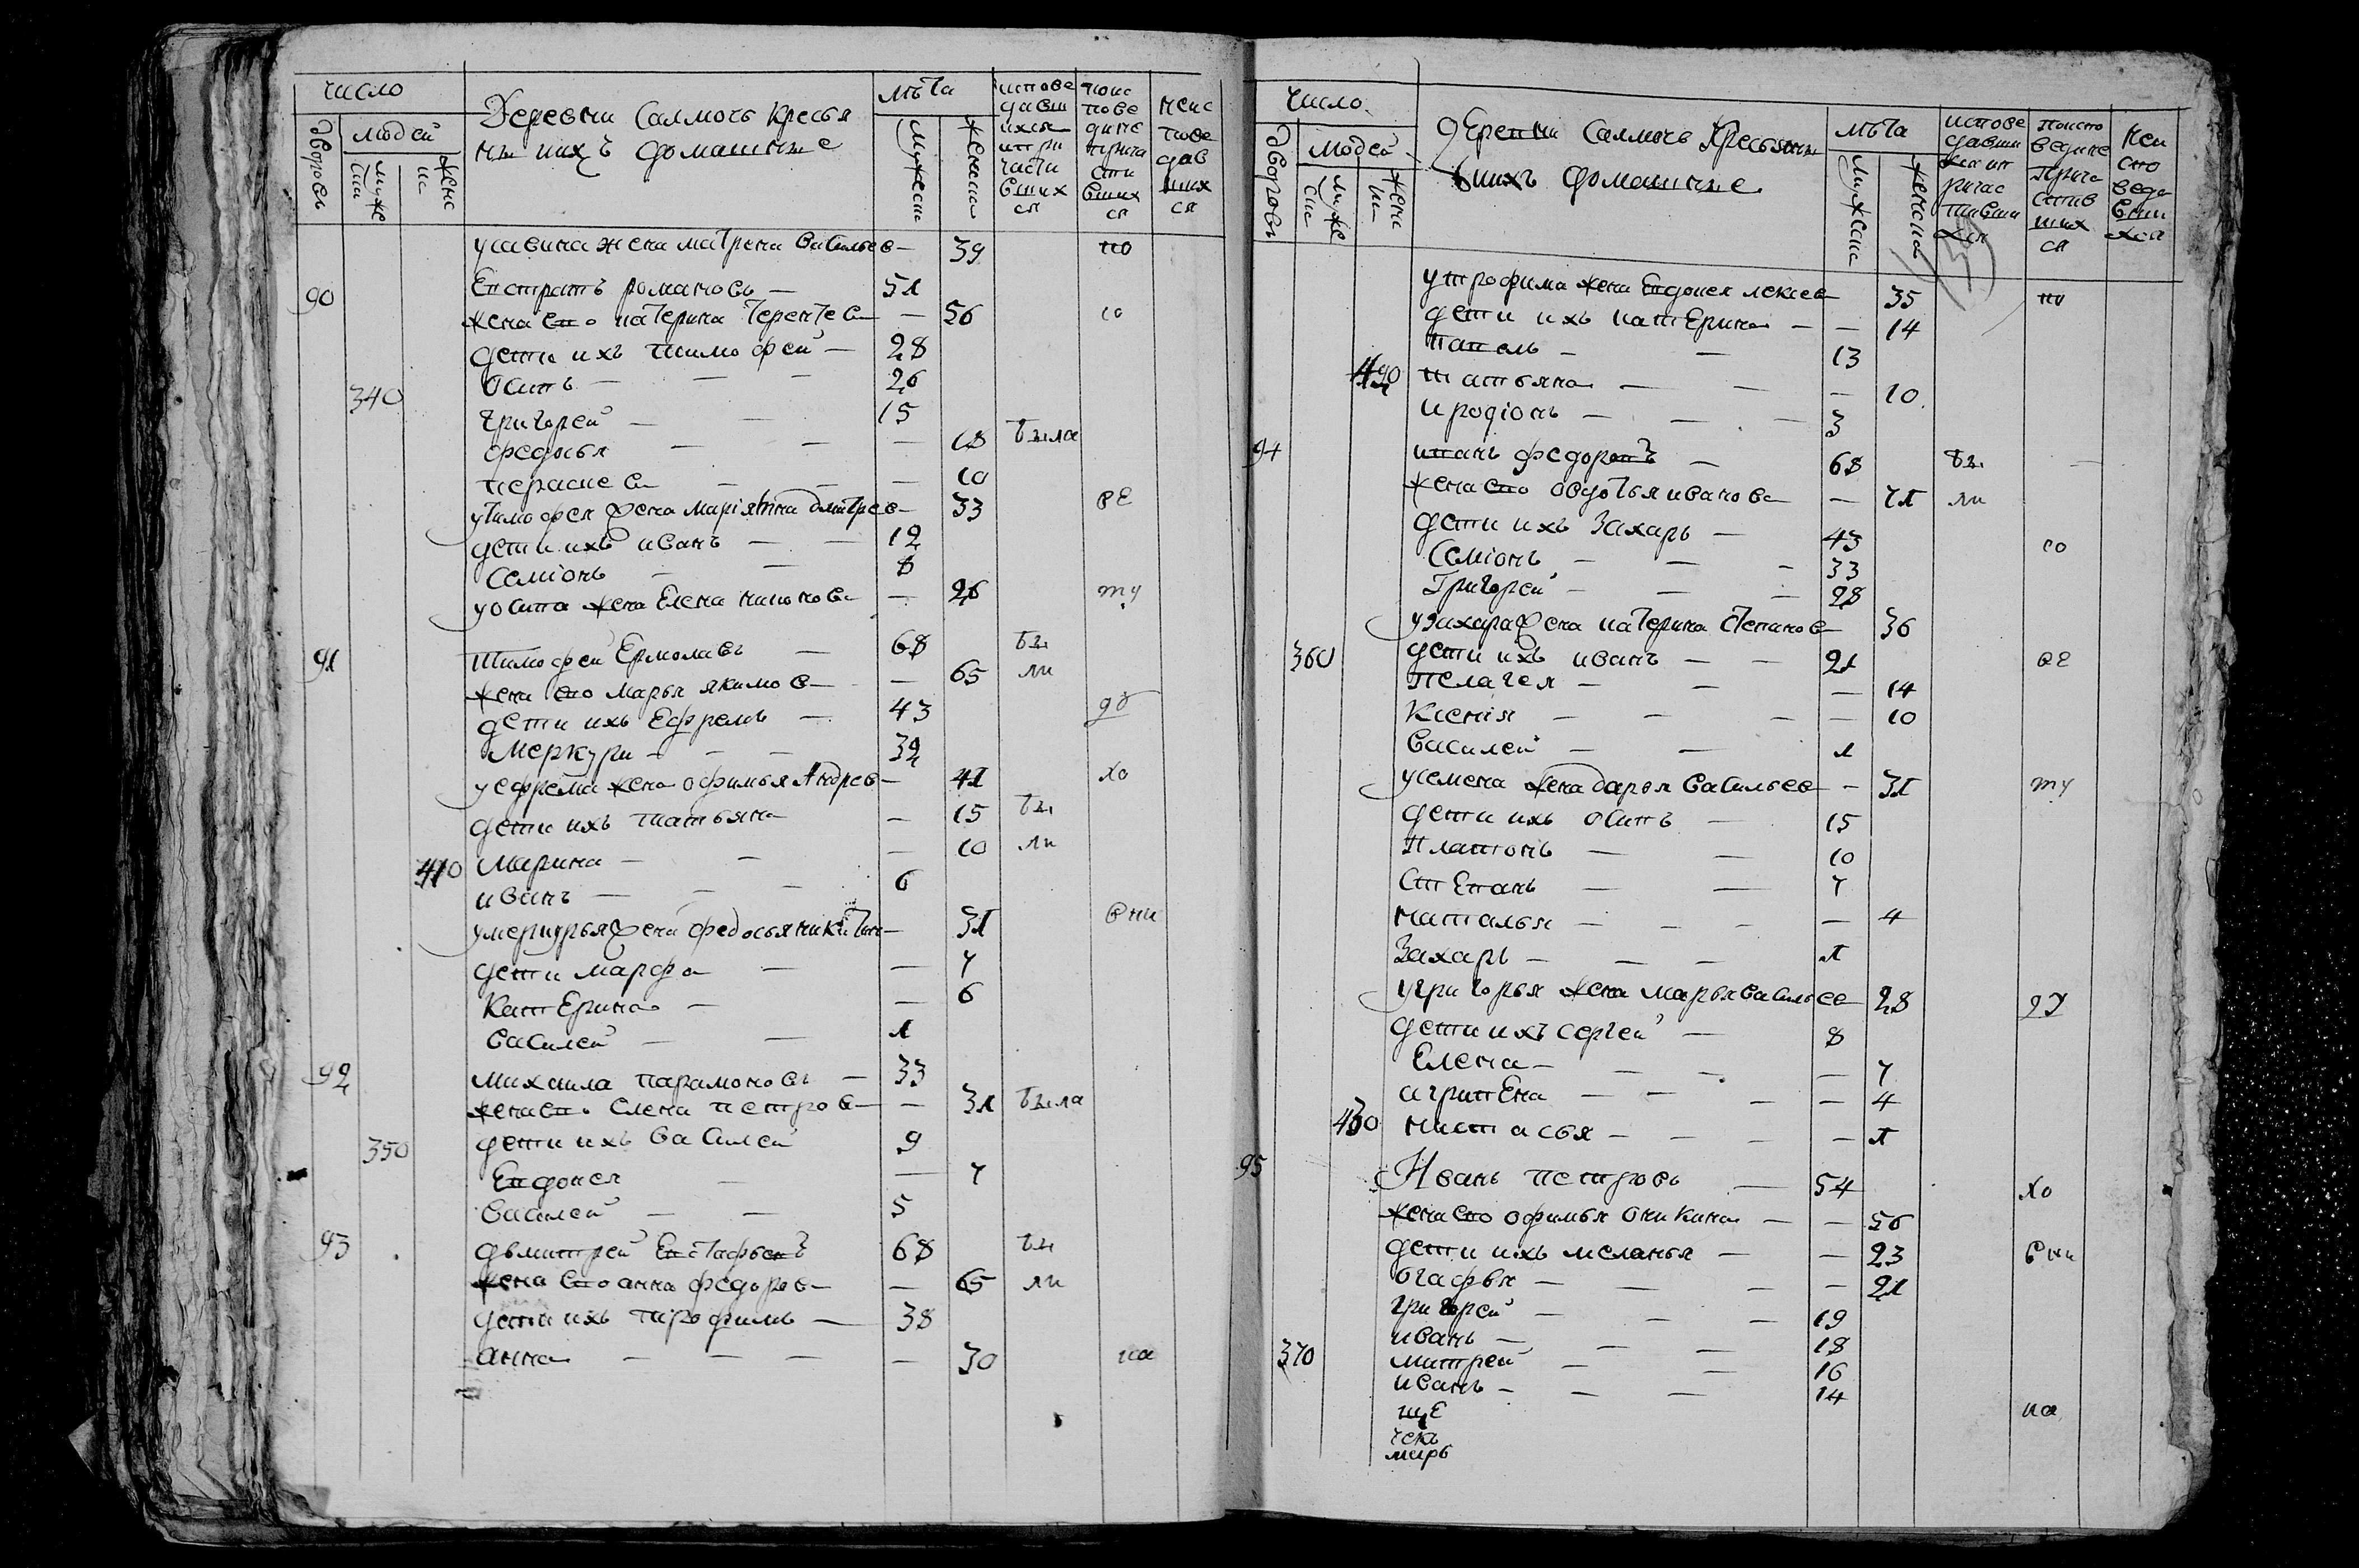 число
Деревни Салмочь кресья
не ихъ домашние
лѣта
исповедавшихся и причастившихся
по исповеди не причастившихся
не исповедавшихся
дворовъ
людей
мужеска
женска
мужеска
женска
у савина жена матрена васильев— 39 по
90 Евстратъ романовъ — 51
жена ево катерина терентев— — 56 со
дети ихъ тимофей — 28
осипъ — — — 26
340 григорей — — 15
федосья — — — 18 была
пераскев — — — 10
у тимофея жена марія дмитрев— 33 ве
дети ихъ иванъ — — 12
Семіонъ — — 8
у осипа жена Елена никонов— — 26 ту
91 тимофей Ермолавъ — 68 бы
жена ево марья якимов— — 65 ли
дети ихъ Ефремъ — 43 до
Меркури — — — 32
у ефрема жена офимья Андрев— 41 хо
дети ихъ татьяна — 15 бы
410 Марина — — — 10 ли
иванъ — — — 6
у меркурья жена федосья никитин— 31 вни
дети марфа — — 7
Катерина — — 6
василей — — 1
92 михаила парамоновъ — 33
жена ево Елена петров— — 31 была
350 дети ихъ василей 9
Евдокея — — 7
василей — — 5
93 дьмитрей Естафьевъ 68 бы
жена ево анна федоров— — 65 ли
дети ихъ трофимъ — 38
анна — — — — 30 ка
число
деревни Салмочь Кресьяни
ѣ ихъ домашние
лѣта
исповедавшихся и причастившихся
по исповеди не причастившихся
не исповедавшихся
дворовъ
людей
мужеска
женска
мужеска
женска
у трофима жена Евдокея лексеев— 35 по
дети ихъ катерина — — 14
павелъ — — 13
420 татьяна — — — 10
иродіонъ — — — 3
94 иванъ федоровъ — 68 бы
жена ево овдотья иванова — 71 ли
дети ихъ Захаръ — 43 со
Семіонъ — — — 33
Григорей — — — 28
у захара жена катерина степанов— 36
360 дети ихъ иванъ — — 21 ве
пелагея — — — 14
Ксенія — — — — 10
василей — — 1
у семена жена дарья васильев — 31 ту
дети ихъ осипъ — 15
платонъ — — 10
степанъ — — 7
наталья — — — — 4
Захаръ — — — 1
у григорья жена марья васильев— 28 до
дети ихъ сергей — 8
Елена — — — — 7
агрипена — — — — 4
430 настасья — — — — 1
95 Иванъ петровъ — 54 хо
жена ево офимья оникина — — 56
дети ихъ меланья — — 23 вни
огафья — — — — 21
григорей — — — 19
иванъ — — — 18
370 митрей — — 16
иванъ — — — 14
ка